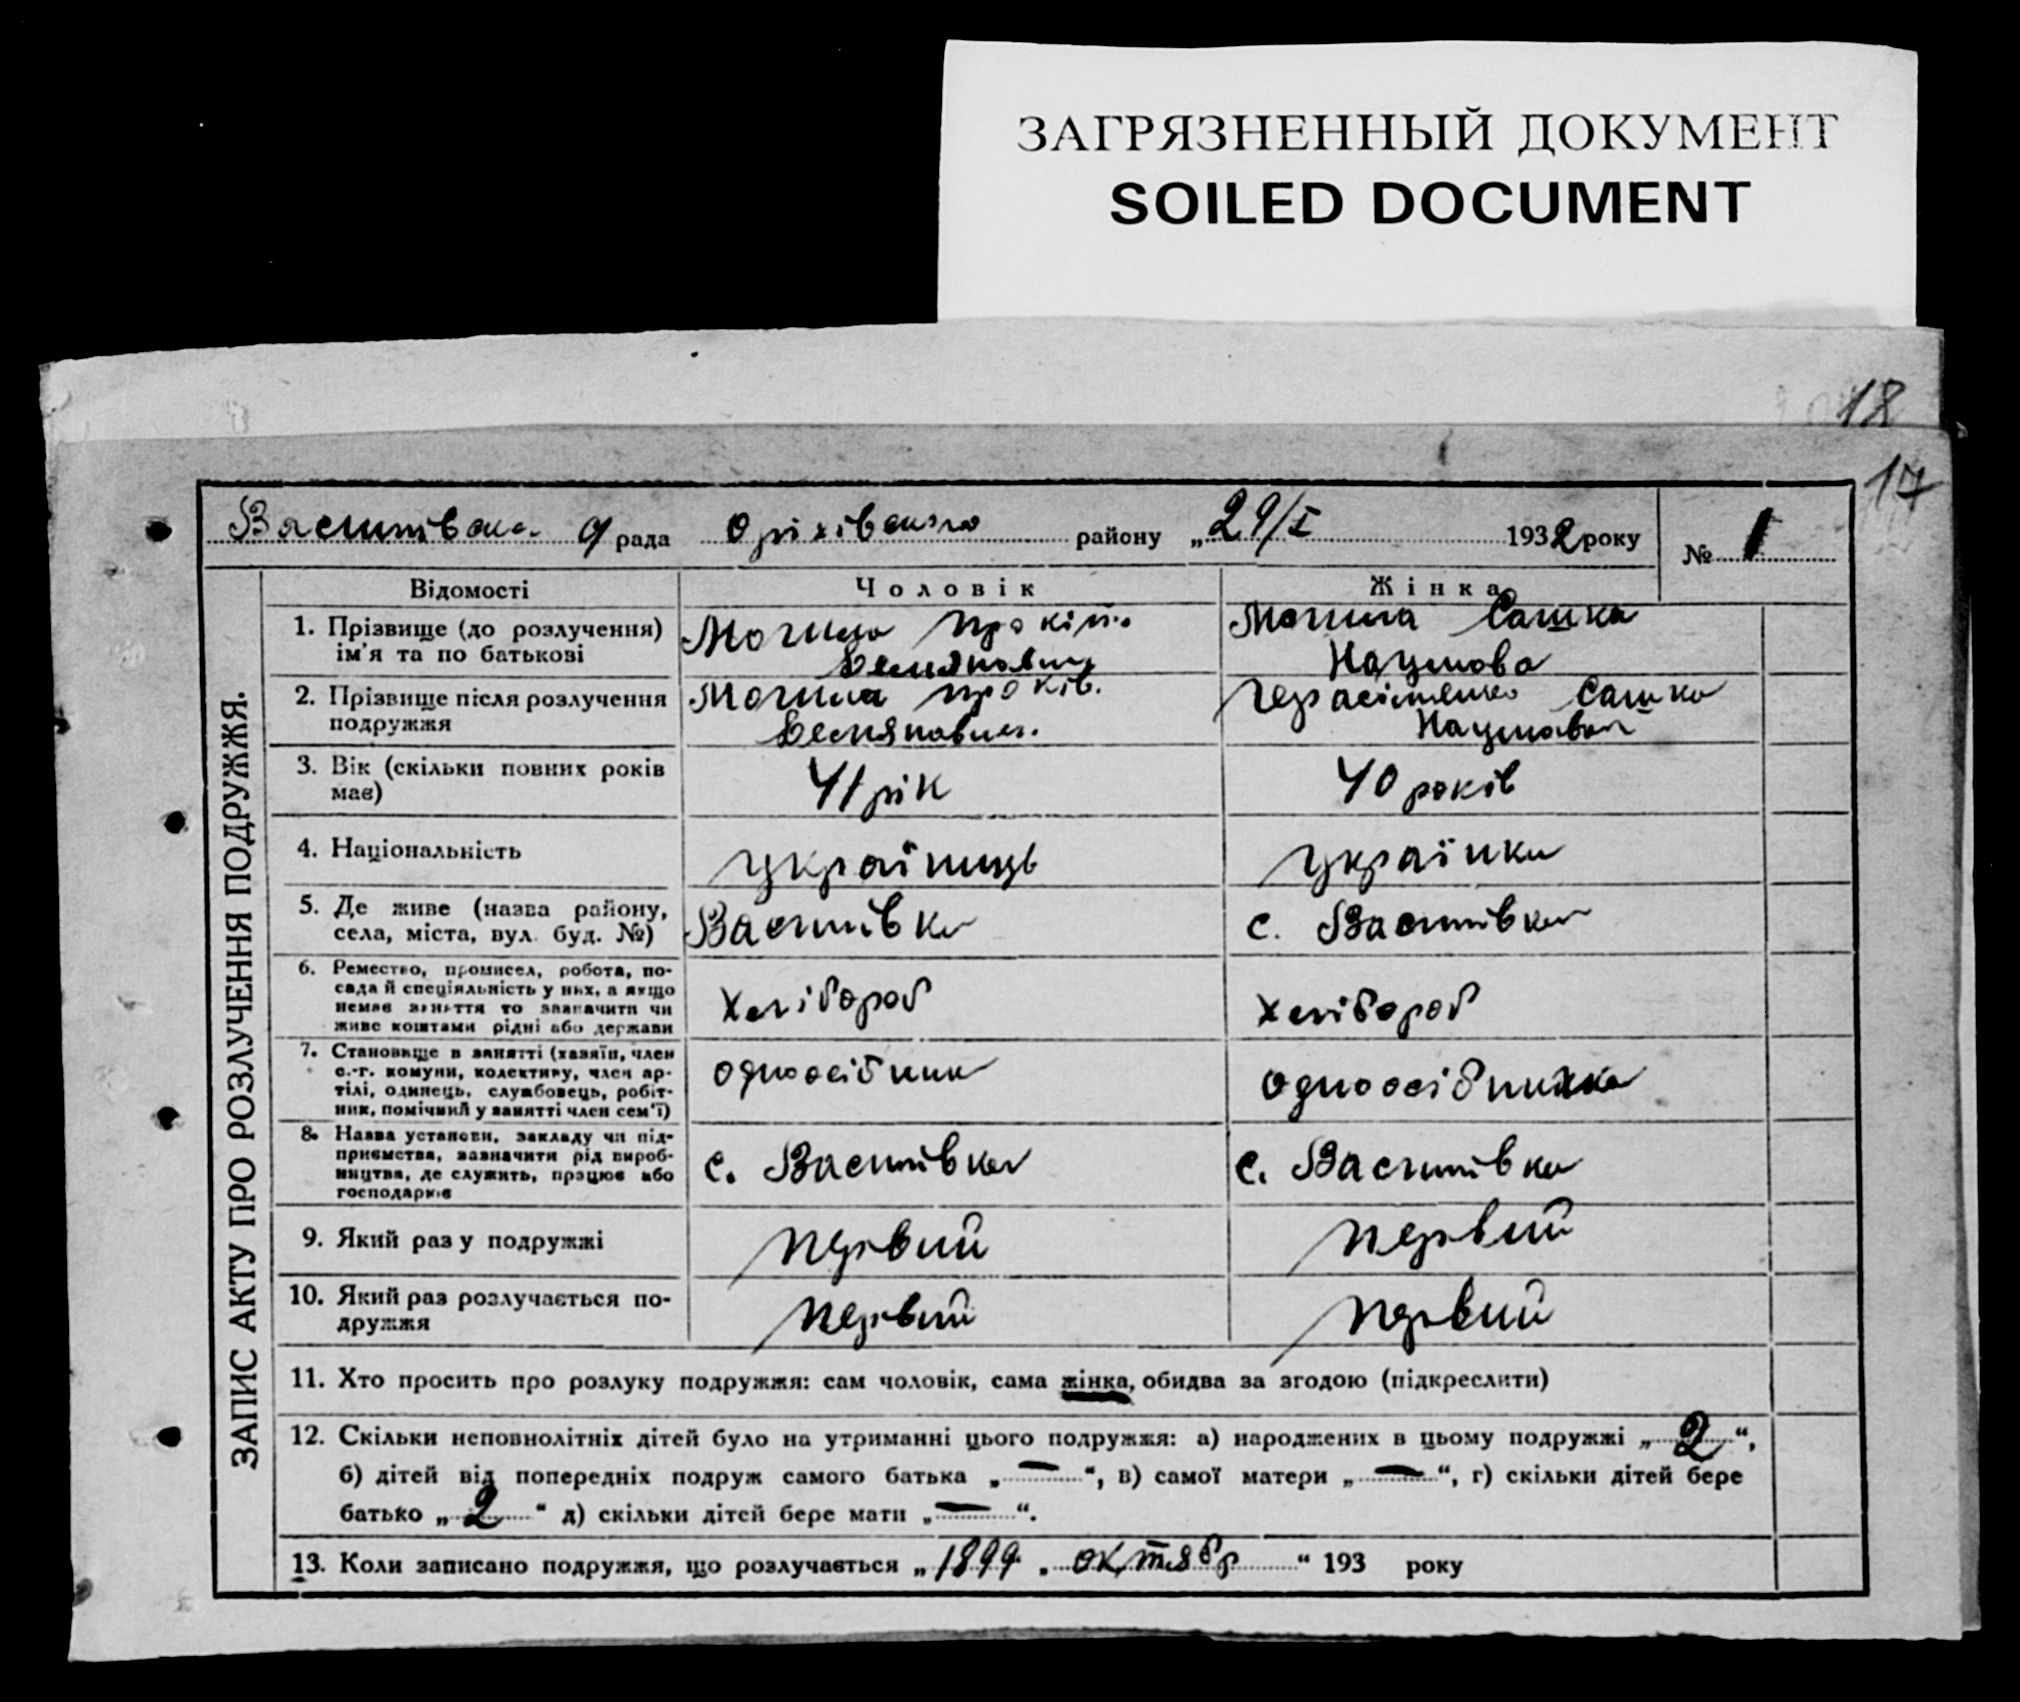 ЗАГРЯЗНЕННЫЙ ДОКУМЕНТ
SOILED DOCUMENT
18
17
ЗАПИС АКТУ ПРО РОЗЛУЧЕННЯ ПОДРУЖЖЯ.
Василівська рада Оріхівского району „29/I 1932 року № 1
Відомості Чоловік Жінка
1. Прізвище (до розлучення) ім'я та по батькові
Могила Прокіп.
Могила Сашка Наумова
2. Прізвище після розлучення подружжя
Могила Прокіп.
Герасіменко Сашка Наумовая
3. Вік (скільки повних років має)
41 рік
40 років
4. Національність
українць
українка
5. Де живе (назва району, села, міста, вул. буд. №)
Василівка
с. Василівка
6. Ремество, промисел, робота, по-
сада й спеціяльність у них, а якщо
немає заняття то зазначити чи
живе коштами рідні або держави
Хлібороб
Хлібороб
7. Становище в занятті (хазяїн, член
с.-г. комуни, колективу, член ар-
тілі, одинець, службовець, робіт-
ник, помічний у занятті член сем'ї)
одноосібник
одноосібника
8. Назва установи, закладу чи під-
приємства, зазначити рід вироб-
ництва, де служить, працює або
господарює
с. Василівка
с. Василівка
9. Який раз у подружжі
первий
первий
10. Який раз розлучається по-
дружжя
первий
первий
11. Хто просить про розлуку подружжя: сам чоловік, сама жінка, обидва за згодою (підкреслити)
12. Скільки неповнолітніх дітей було на утриманні цього подружжя: а) народжених в цьому подружжі „2“,
б) дітей від попередніх подруж самого батька „—“, в) самої матери „—“, г) скільки дітей бере
батько „2“ д) скільки дітей бере мати „—“.
13. Коли записано подружжя, що розлучається „1899. „ октябр “ 193 року